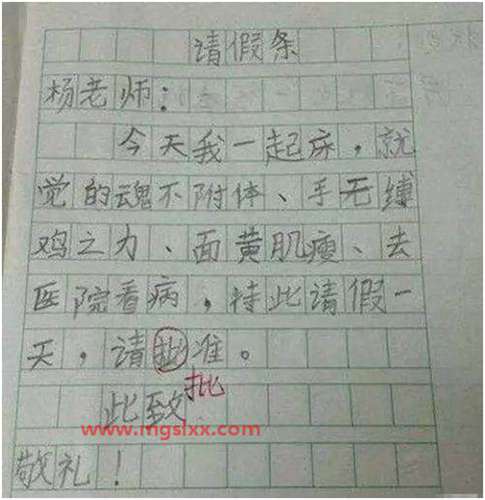 请假条
杨老师：
今天我一起床，就
觉的魂不附体、手无缚
鸡之力、面黄肌瘦、去
医院看病，特此请假一
天，请批准。
批
此致
www.mgslxx.com
敬礼！